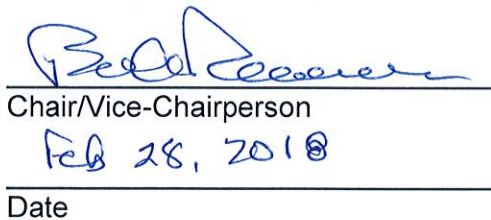 Chair/Vice-Chairperson
Feb 28, 2018
Date